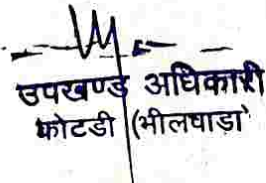 उपखण्ड अधिकारी
कोटडी (भीलवाडा)